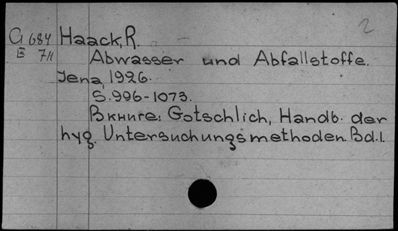 2
G 684 Haack, R.
E 711 Abwasser und Abfallstoffe.
Jena, 1926.
S. 996-1073.
В книге: Gotschlich, Handb. der
hyg. Untersuchungsmethoden. Bd. I.